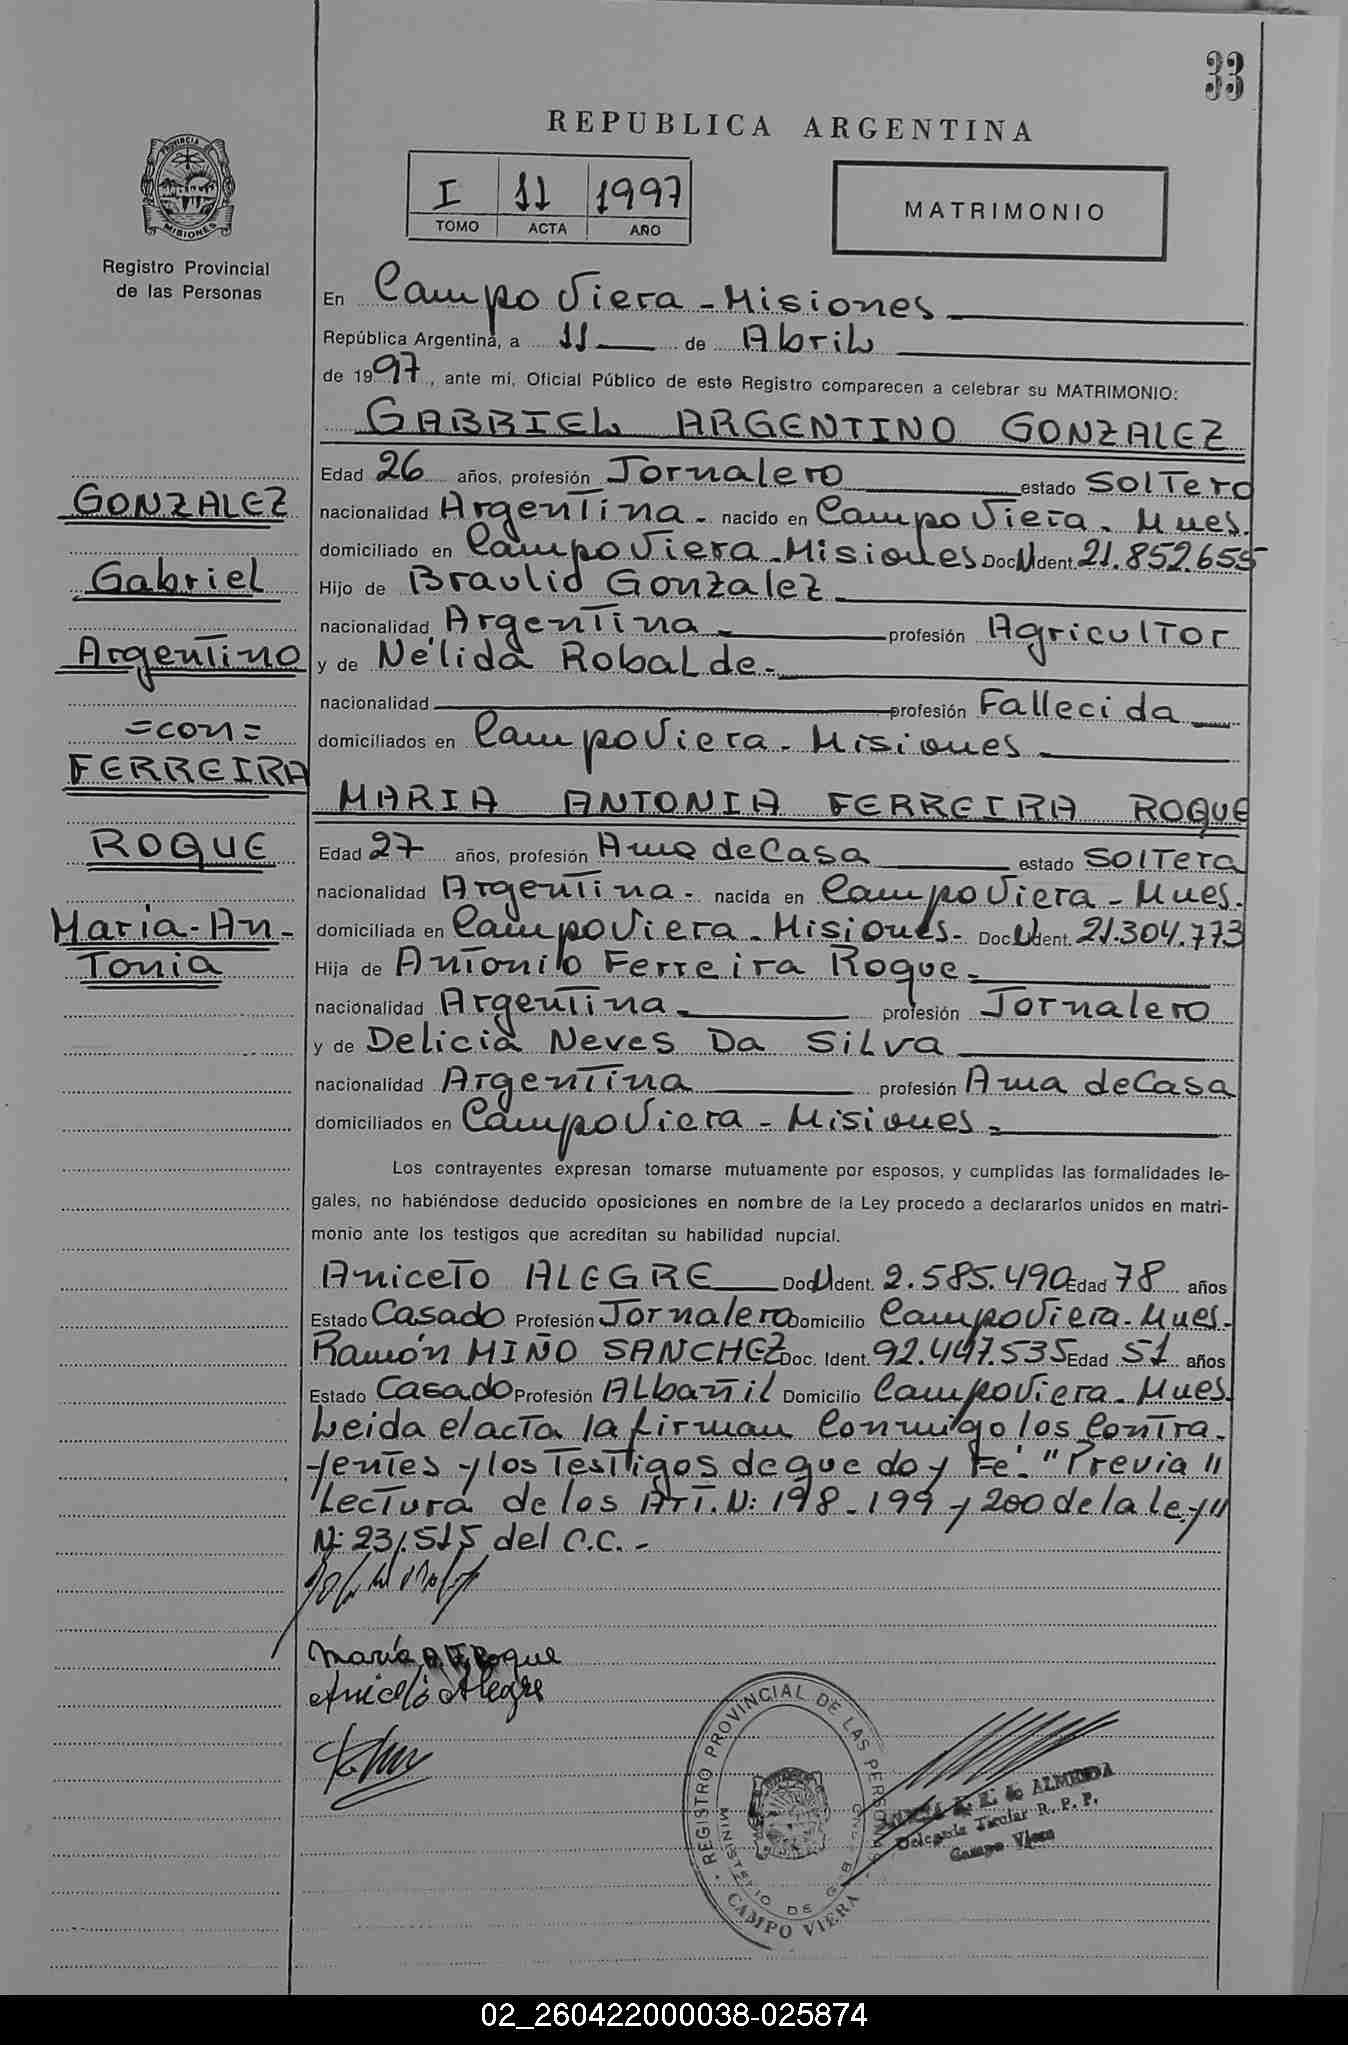 33
REPUBLICA ARGENTINA
I 11 1997
TOMO ACTA AÑO
MATRIMONIO
PROVINCIA DE
MISIONES
Registro Provincial
de las Personas
En Campo Viera - Misiones
República Argentina, a 11 de Abril
de 1997, ante mi, Oficial Público de este Registro comparecen a celebrar su MATRIMONIO:
GABRIEL ARGENTINO GONZALEZ
Edad 26 años, profesión Jornalero estado Soltero
nacionalidad Argentina - nacido en Campo Viera - Mnes.
domiciliado en Campo Viera - Misiones Doc. N Ident. 21.852.655
Hijo de Braulio Gonzalez
nacionalidad Argentina - profesión Agricultor
y de Nélida Robalde -
nacionalidad profesión Fallecida
domiciliados en Campo Viera - Misiones -
MARIA ANTONIA FERREIRA ROQUE
Edad 27 años, profesión Ama de Casa estado Soltera
nacionalidad Argentina - nacida en Campo Viera - Mnes.
domiciliada en Campo Viera - Misiones - Doc. U Ident. 21.304.773
Hija de Antonio Ferreira Roque -
nacionalidad Argentina - profesión Jornalero
y de Delicia Neves Da Silva
nacionalidad Argentina profesión Ama de Casa
domiciliados en Campo Viera - Misiones -
Los contrayentes expresan tomarse mutuamente por esposos, y cumplidas las formalidades le-
gales, no habiéndose deducido oposiciones en nombre de la Ley procedo a declararlos unidos en matri-
monio ante los testigos que acreditan su habilidad nupcial.
Aniceto ALEGRE Doc. U Ident. 2.585.490 Edad 78 años
Estado Casado Profesión Jornalero Domicilio Campo Viera - Mnes.
Ramón MIÑO SANCHEZ Doc. Ident. 92.447.535 Edad 51 años
Estado Casado Profesión Albañil Domicilio Campo Viera - Mnes.
Leida el acta la firman conmigo los contra-
yentes y los testigos de que doy Fe. "Previa"
"Lectura de los Art. N: 198 - 199 y 200 de la ley"
N: 23.515 del C.C. -
GONZALEZ
Gabriel
Argentino
=con=
FERREIRA
ROQUE
Maria - An-
tonia
María A. F. Roque
Aniceto Alegre
REGISTRO PROVINCIAL DE LAS PERSONAS
MINISTERIO DE GOB
CAMPO VIERA
de ALMEIDA
Delegada Titular R. P. P.
Campo Viera
02_260422000038-025874